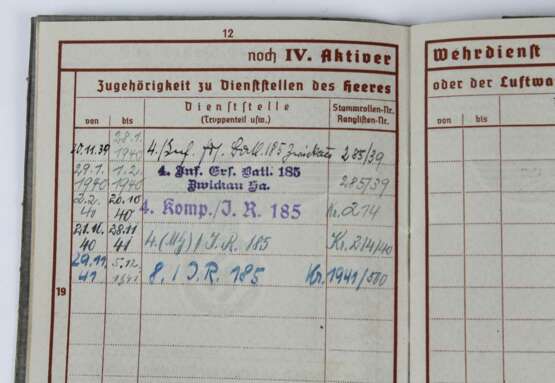 12
noch IV. Aktiver
Wehrdienst
Zugehörigkeit zu Dienststellen des Heeres
oder der Luftwa
Dienststelle
(Truppenteil usw.)
Stammrollen-Nr.
Ranglisten-Nr.
von bis
von bis
28.1.
20.11.39 1940 4./Inf. Ers. Batl. 185 Zwickau 285/39
29.1. 1.2. 4. Inf. Ers. Batl. 185
1940 1940 Zwickau Sa. 285/39
2.2. 20.10
41 40 4. Komp./J. R. 185 Kr. 214
21.11. 28.11
40 41 4. (MG) / J. R. 185 Kr. 214/40
29.11. 5.12.
41 1941 8. / J. R. 185 Kr. 1941/500
19